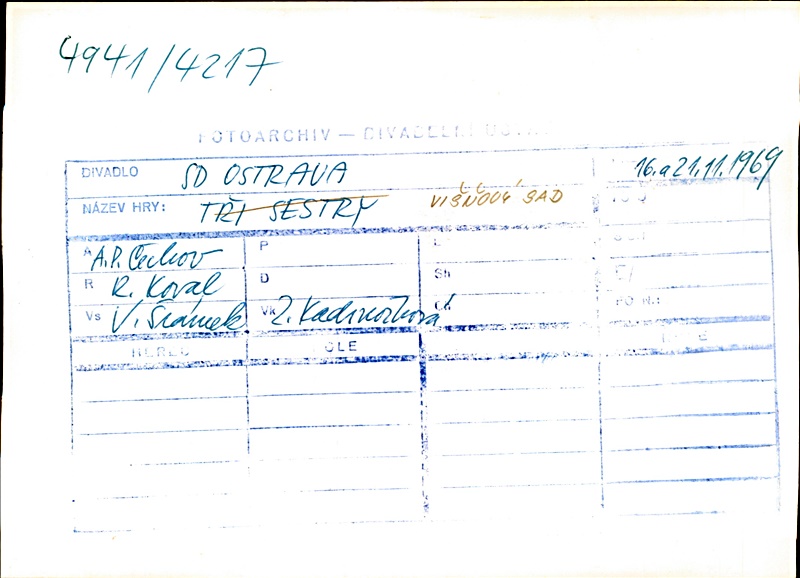 4941/4217
FOTOARCHIV — DIVADELNÍ ÚSTAV
DIVADLO SD OSTRAVA 16. a 21.11.1969
NÁZEV HRY: TŘI SESTRY VIŠŇOVÝ SAD
A A.P. Čechov P
R R. Koval D Sh
Vs V. Šrámek Vk Z. Kadrnožková
HEREC ROLE